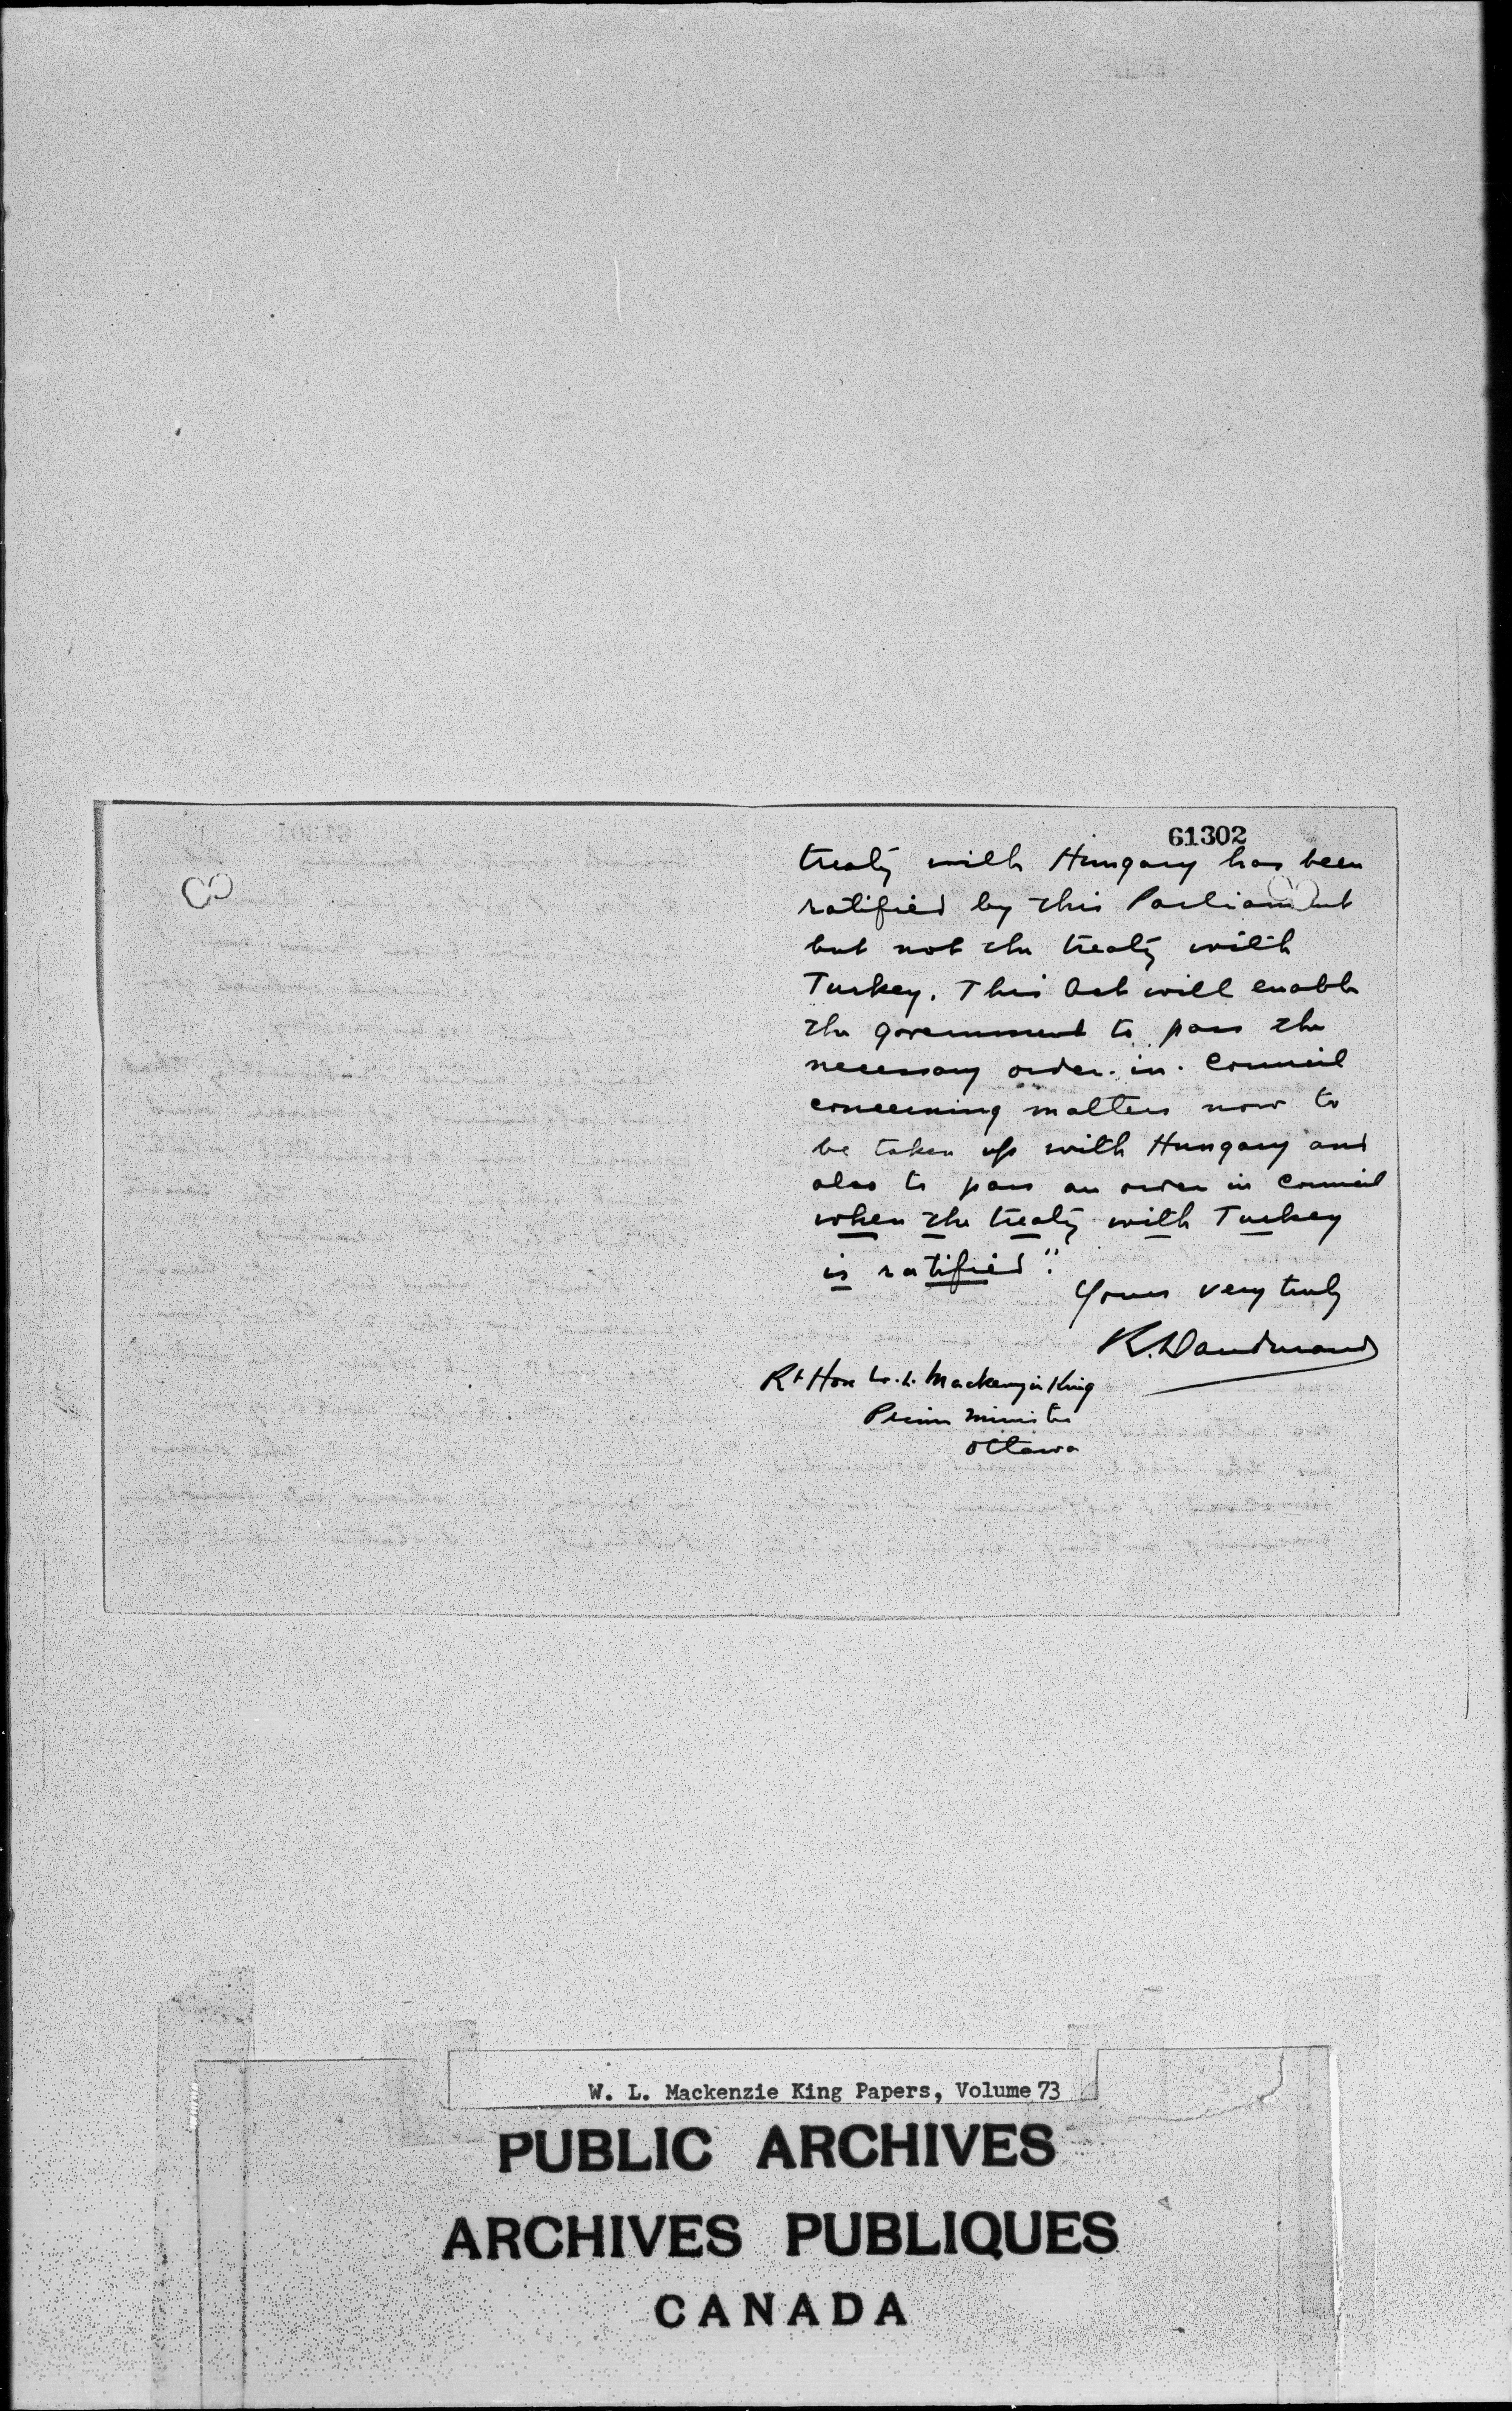 61302
treaty with Hungary has been
ratified by this Parliament
but not the treaty with
Turkey. This Act will enable
the government to pass the
necessary order-in-Council
concerning matters now to
be taken up with Hungary and
also to pass an order in Council
when the treaty with Turkey
is ratified".
Yours very truly
R. Dandurand
Rt Hon W. L. Mackenzie King
Prime Minister
Ottawa
W. L. Mackenzie King Papers, Volume 73
PUBLIC ARCHIVES
ARCHIVES PUBLIQUES
CANADA